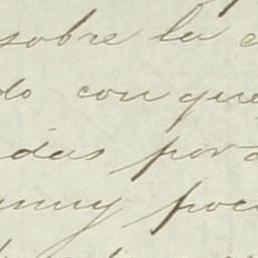 sobre la
do con que
das por
muy poc